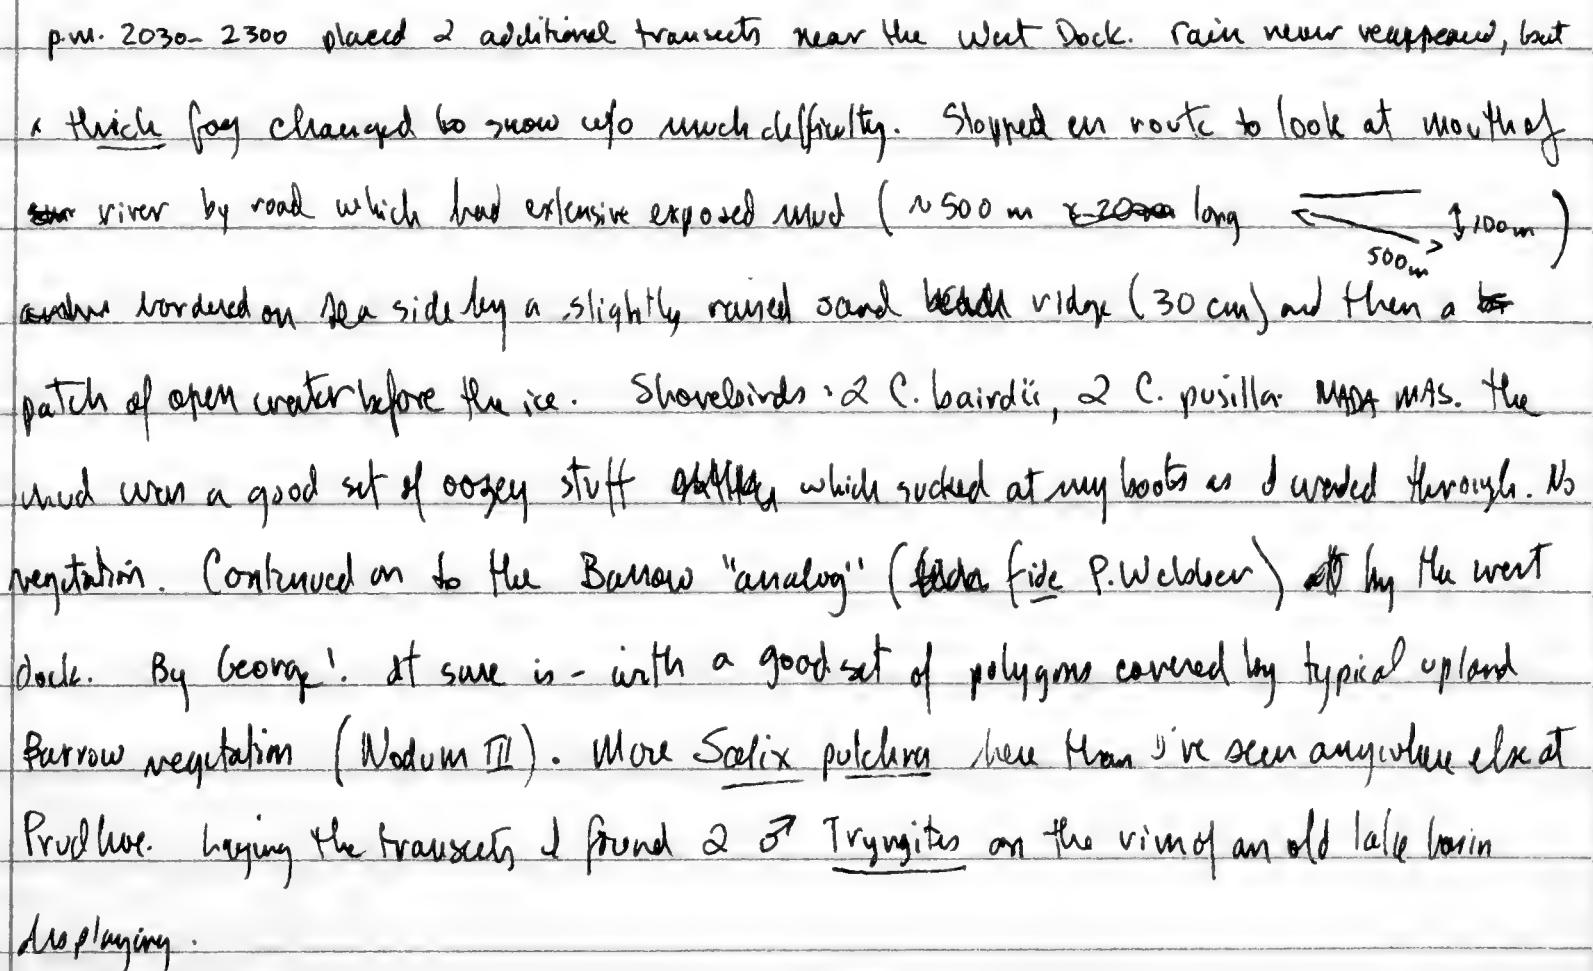 p.m. 2030-2300 placed 2 additional transects near the West Dock. rain never reappeared, but
a thick fog changed to snow w/o much difficulty. Stopped en route to look at mouth of
river by road which had extensive exposed mud (~500 m long 500m 100m)
bordered on sea side by a slightly raised sand ridge (30 cm) and then a
patch of open water before the ice. Shorebirds: 2 C. bairdii, 2 C. pusilla. NADA MAS. The
mud was a good set of oozey stuff which sucked at my boots as I waded through. No
vegetation. Continued on to the Barrow "analog" (fide P. Webber) by the west
dock. By George! It sure is - with a good set of polygons covered by typical upland
Barrow vegetation (Nodum III). More Salix pulchra here than I've seen anywhere else at
Prudhoe. Laying the transects I found 2 ♂ Tryngites on the rim of an old lake basin
displaying.